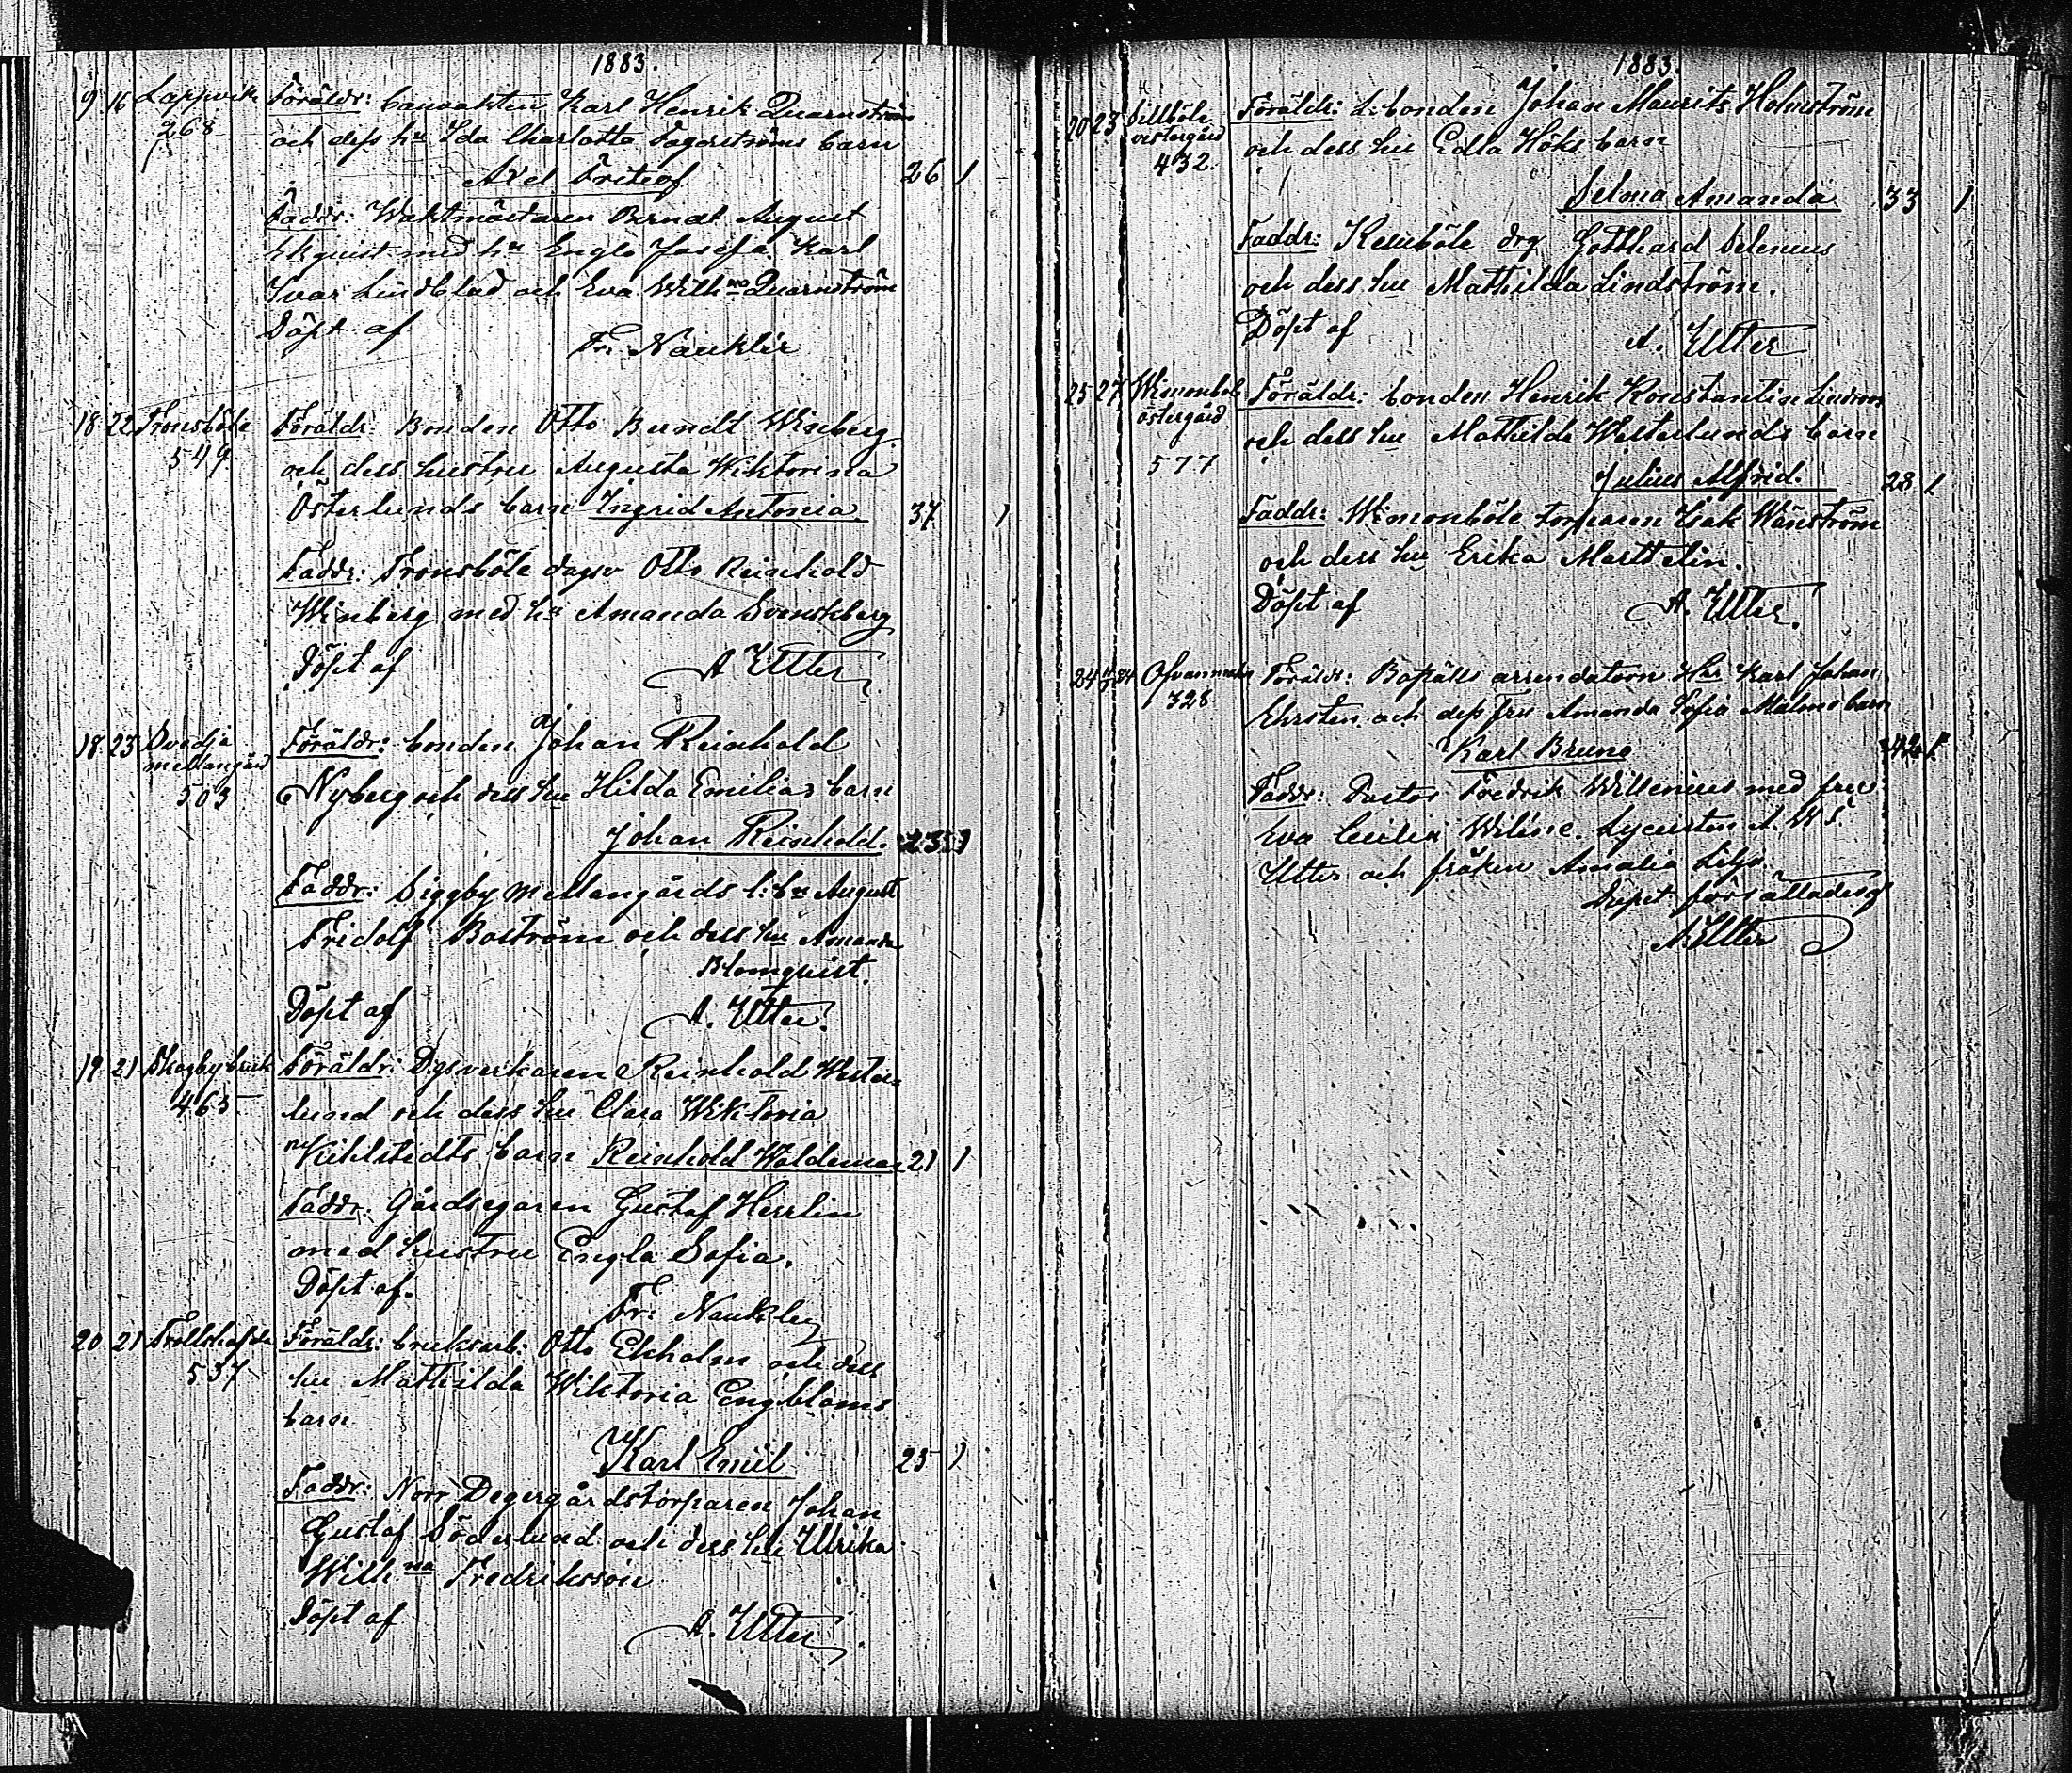 1883.
9 16 Lappvik Föräldr: banvakten Karl Henrik Quarnström
268 och dess hu Ida Charlotta Fagerströms barn
Axel Fritiof 26 1
Faddr: Waktmästaren Berndt August
Ekquist med hu Engla Josefa. Karl
Ivar Lindblad och Eva Wilhna Quarnström
Döpt af Fr. Nauklér
18 22 Tronsböle Föräldr: Bonden Otto Berndt Winberg
549 och dess hustru Augusta Wiktorina
Österlunds barn Ingrid Antonia. 37 1
Faddr: Tronsböle dagsv Otto Reinhold
Winberg med hu Amanda Svenskberg
Döpt af A Utter
18 23 Svedja mellangård Föräldr: bonden Johan Reinhold
503 Nyberg och dess hu Hilda Emilias barn
Johan Reinhold. 23 1
Faddr: Siggby Mellangårds l:bn August
Fridolf Boström och dess hu Amanda
Blomqvist.
Döpt af A. Utter.
19 21 Skogby bruk Föräldr: Dgsverkaren Reinhold Wester-
465 lund och dess hu Clara Wiktoria
Kihlstedts barn Reinhold Waldemar 21 1
Faddr: Gårdsegaren Gustaf Herrlin
med hustru Engla Sofia.
Döpt af. Fr: Naukler
20 21 Trollshofda Föräldr: bruksarb: Otto Ekholm och dess
537 hu Mathilda Wiktoria Engbloms
barn
Karl Emil 25 1
Faddr: Norr Degergårdstorparen Johan
Gustaf Söderlund och dess hu Ulrika
Wilhna Fredriksson
Döpt af A. Utter.
1883.
20 23 Sillböle vestergård Föräldr: L:bonden Johan Maurits Holmström
432. och dess hu Edla Höks barn
Selma Amanda 33 1
Faddr: drg Gotthard Selenius
och dess hu Mathilda Lindström.
Döpt af A. Utter
25 27 Wimonböle östergård Föräldr: bonden Henrik Konstantin Lindroos
577 och dess hu Mathilda Westerlunds barn
Julius Alfrid. 28 1
Faddr: Wimonböle torparen Isak Wänström
och dess hu Erika Marttelin.
Döpt af A. Utter.
24 Föräldr: Boställs arrendatorn Herr Karl Johan
328 Ehrsten och dess fru Amanda Sofia Malms barn
Karl Bruno 42 1
Faddr: Pastor Fredrik Willenius med fru
Eva Cecilia
Utter och fröken Amalia Lilja.
Döpt förrättades af
A. Utter